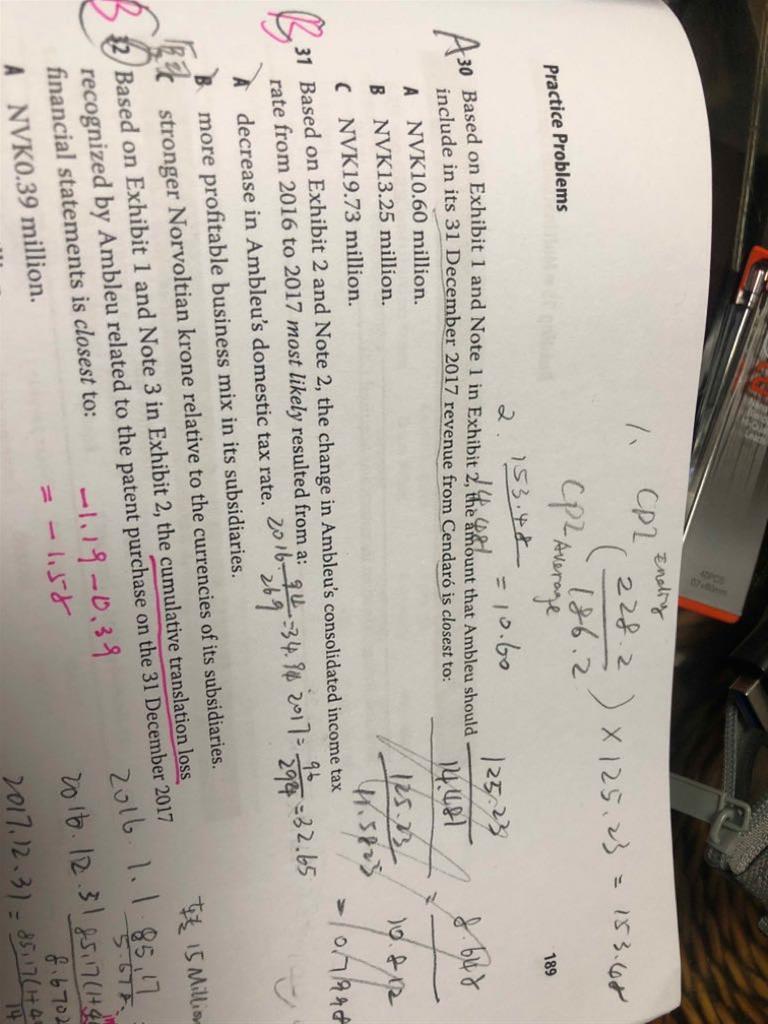 Practice Problems 189
1. CPI Ending
( 228.2
186.2 ) × 125.23 = 153.48
CPI Average
2. 153.48
14.481 = 10.60
A 30 Based on Exhibit 1 and Note 1 in Exhibit 2, the amount that Ambleu should
include in its 31 December 2017 revenue from Cendaró is closest to:
A NVK10.60 million.
B NVK13.25 million.
C NVK19.73 million.
125.23
14.481 = 8.648
125.23
11.5823
10.812
= 10.7998
B 31 Based on Exhibit 2 and Note 2, the change in Ambleu's consolidated income tax
rate from 2016 to 2017 most likely resulted from a:
A decrease in Ambleu's domestic tax rate.
2016 94
269 = 34.94 2017 = 96
294 = 32.65
B more profitable business mix in its subsidiaries.
C stronger Norvoltian krone relative to the currencies of its subsidiaries.
B 32 Based on Exhibit 1 and Note 3 in Exhibit 2, the cumulative translation loss
recognized by Ambleu related to the patent purchase on the 31 December 2017
financial statements is closest to:
A NVK0.39 million.
-1.19 -0.39
= -1.58
15 Million
2016.1.1 85.17
2016.12.31 85.17(1+4
8.6702
2017.12.31 = 85.17(1+4
14